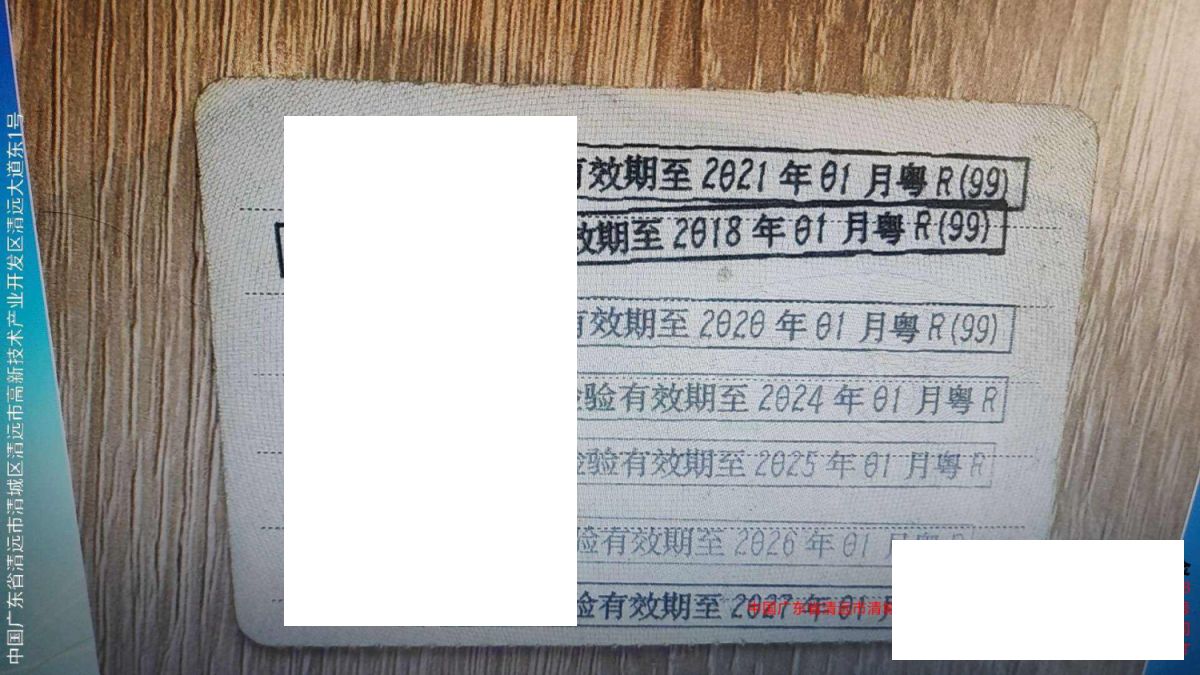 有效期至 2021 年 01 月粤 R(99)
效期至 2018 年 01 月粤 R(99)
有效期至 2020 年 01 月粤 R(99)
验有效期至 2024 年 01 月粤 R
验有效期至 2025 年 01 月粤 R
验有效期至 2026 年 01 月粤 R
验有效期至 2027 年 01 月
中国广东省清远市清城
中国广东省清远市清城区清远市高新技术产业开发区清远大道东1号